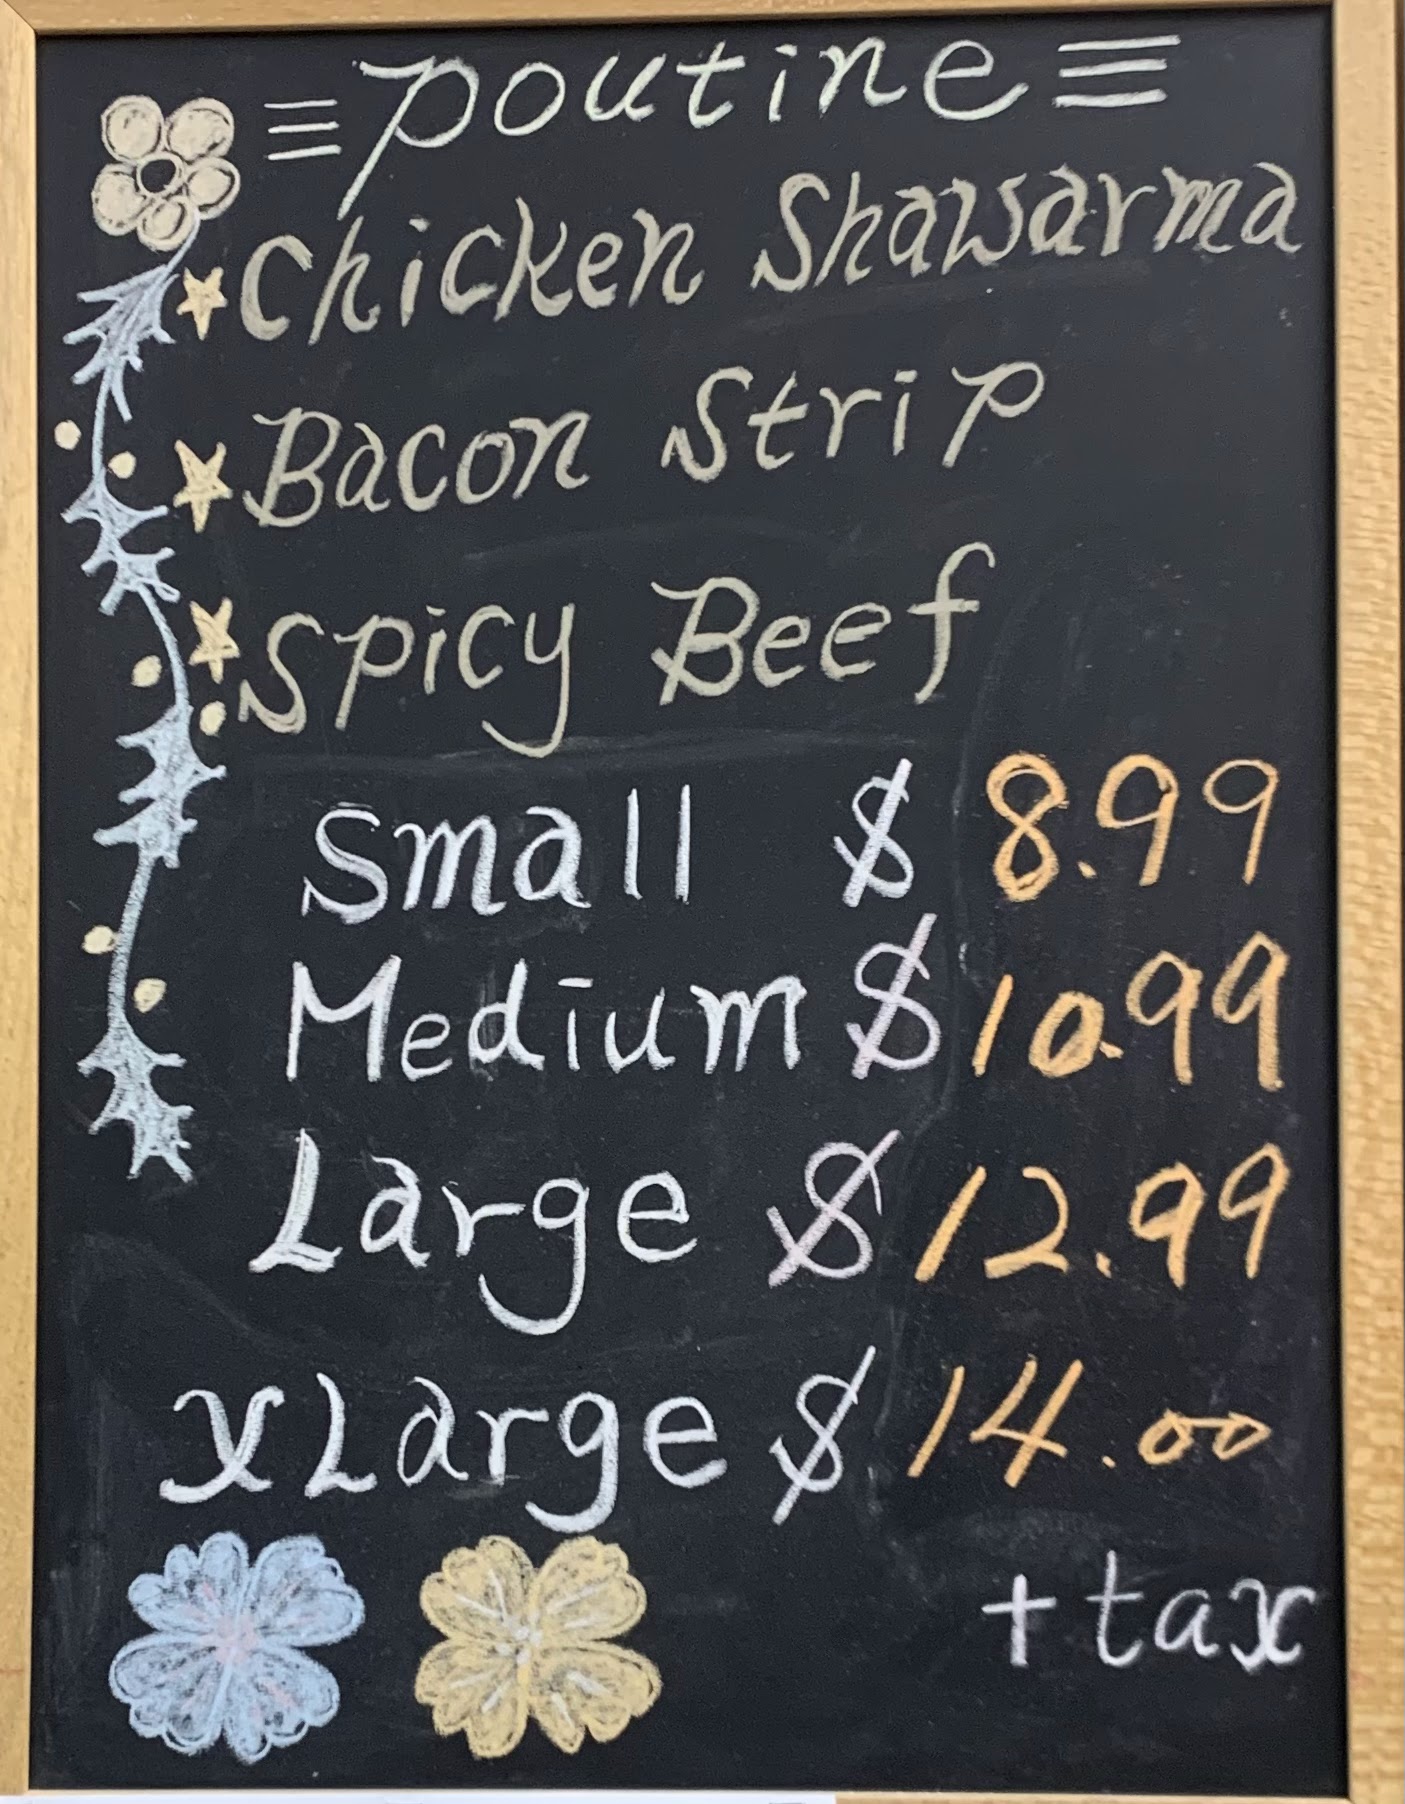 ≡ Poutine ≡
Chicken Shawarma
Bacon Strip
Spicy Beef
Small $ 8.99
Medium $ 10.99
Large $ 12.99
xLarge $ 14.00
+ tax